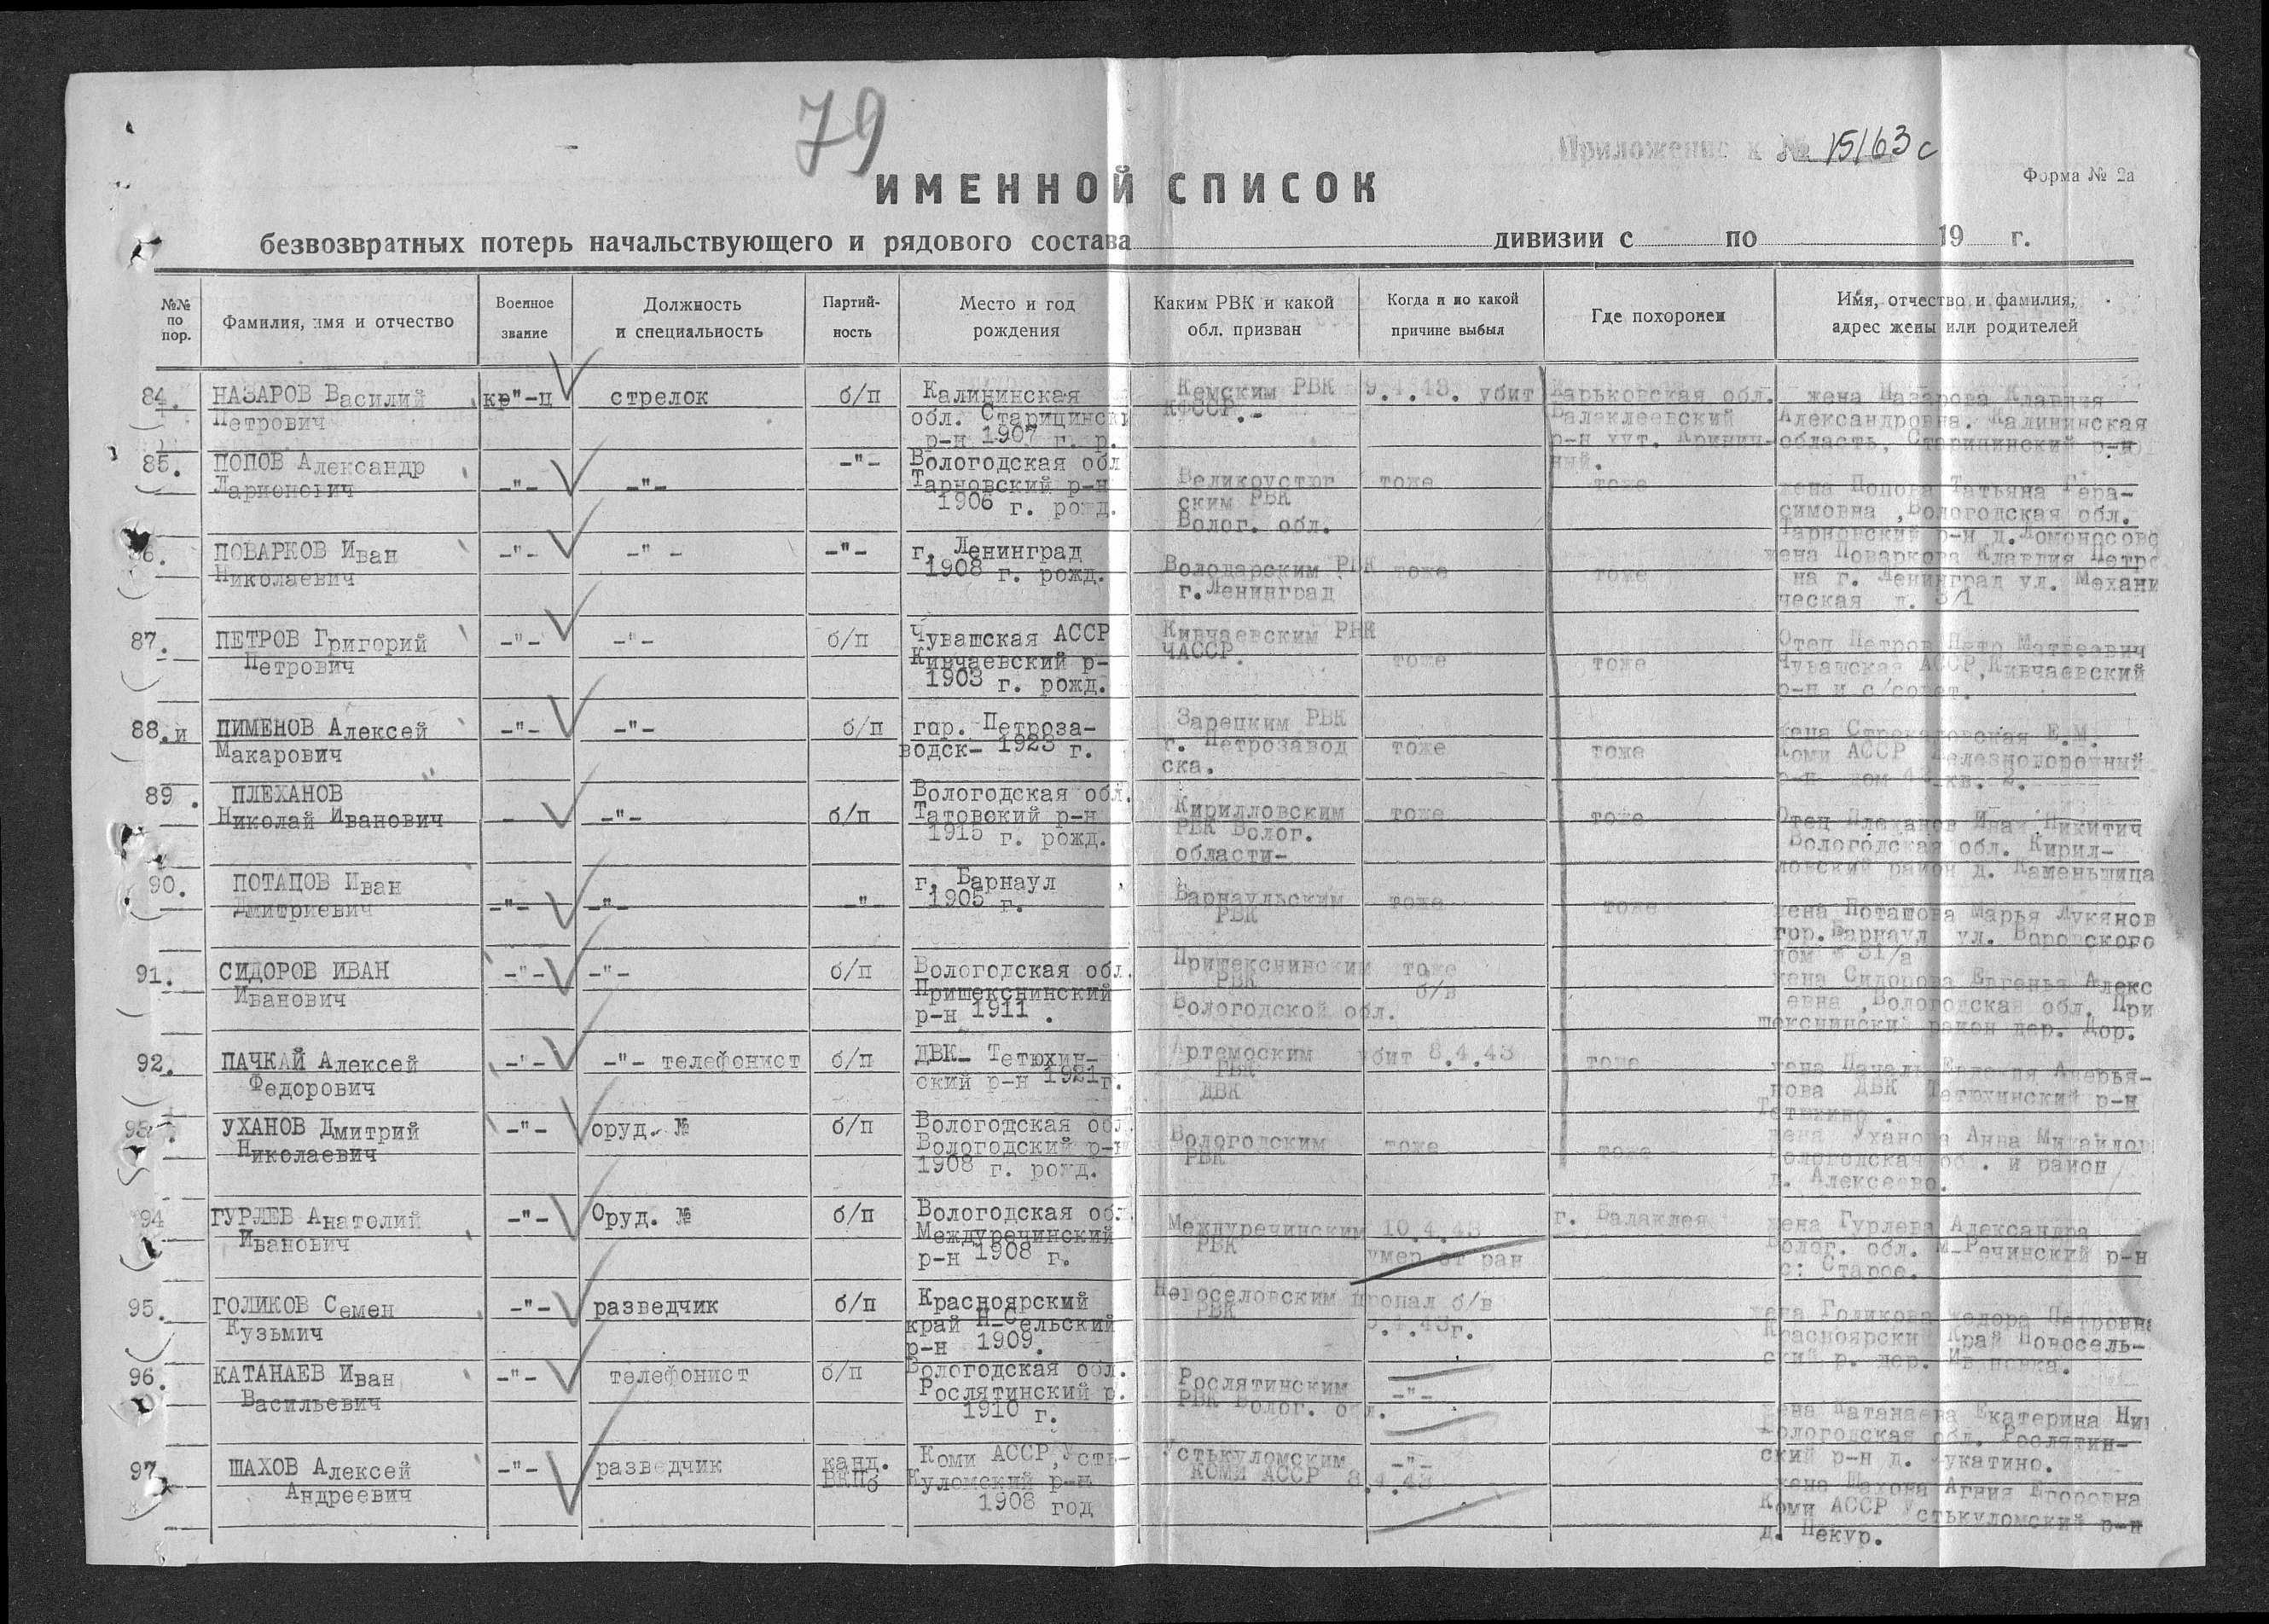 79
Приложение к № 15163с
ИМЕННОЙ СПИСОК
Форма № 2а
безвозвратных потерь начальствующего и рядового состава дивизии с по 19 г.
№№ по пор.
Фамилия, имя и отчество
Военное звание
Должность и специальность
Партий-ность
Место и год рождения
Каким РВК и какой обл. призван
Когда и по какой причине выбыл
Где похоронен
Имя, отчество и фамилия, адрес жены или родителей
84. НАЗАРОВ Василий кр"-ц стрелок б/п Калининская Кемским РВК 9.4.43. убит Харьковская обл. жена Назарова Клавдия
Петрович обл. Старицински КФССР.- Балаклеевский Александровна. Калининская
р-н 1907 г. р. р-н хут. область, Старицинский р-н
ный.
85. ПОПОВ Александр -"- Вологодская обл
Ларионович -"- -"- Тарновский р-н Великоустюг тоже тоже жена Попова Татьяна Гера-
1906 г. рожд. ским РВК симовна, Вологодская обл.
Волог. обл. Тарновский р-н д. Ломоносово
6. ПОВАРКОВ Иван -"- -"- -"- г. Ленинград жена Поваркова Клавдия Петро
Николаевич 1908 г. рожд. Володарским РВК тоже тоже на г. Ленинград ул. Механи
г. Ленинград ческая д. 3/1
87. ПЕТРОВ Григорий -"- -"- б/п Чувашская АССР Кивчаевским РВК Отец Петров Петр Матвеевич
Петрович Кивчаевский р- ЧАССР. тоже тоже Чувашская АССР, Кивчаевский
1903 г. рожд. р-н и с/совет.
88.и ПИМЕНОВ Алексей -"- -"- б/п гор. Петроза- Зарецким РВК жена Е.М.
Макарович водск- 1923 г. г. Петрозавод тоже тоже Коми АССР Железнодорожный
ска. р-н дом кв. 2.
89. ПЛЕХАНОВ Вологодская обл.
Николай Иванович - -"- б/п Татовский р-н Кирилловским тоже тоже Отец Плеханов Иван Никитич
1915 г. рожд. РВК Волог. Вологодская обл. Кирил-
области- ловский район д. Каменьшица
90. ПОТАПОВ Иван г. Барнаул
Дмитриевич -"- -"- -"- 1905 г. Барнаульским тоже тоже жена Поташова Марья Лукянов
РВК гор. Барнаул ул. Воровского
дом № 31/а
91. СИДОРОВ ИВАН -"- -"- б/п Вологодская обл. Пришекснинским тоже жена Сидорова Евгенья Алекс
Иванович Пришекснинский РВК б/в евна, Вологодская обл. При
р-н 1911 . Вологодской обл. шекснинский район дер. Дор.
92. ПАЧКАЙ Алексей -"- -"- телефонист б/п ДВК- Тетюхин- Артемоским убит 8.4.43 тоже жена
Федорович ский р-н 1921г. РВК нова ДВК Тетюхинский р-н
ДВК Тетюхино.
93. УХАНОВ Дмитрий -"- оруд. № б/п Вологодская обл. жена Уханова Анна Михайлов
Николаевич Вологодский р-н Вологодским тоже тоже Вологодская об . и район
1908 г. рожд. РВК д. Алексеево.
94 ГУРЛЕВ Анатолий -"- Оруд. № б/п Вологодская обл. Междуречинским 10.4.43 г. Балаклея жена Гурлева Александра
Иванович Междуречинский РВК умер от ран Волог. обл. м-Речинский р-н
р-н 1908 г. с: Старое.
95. ГОЛИКОВ Семен -"- разведчик б/п Красноярский Новоселовским пропал б/в жена Голикова Федора Петровна
Кузьмич край Н-Сельский РВК .4.43г. Красноярски Край Новосель-
р-н 1909. ский р. дер. Ивановка.
96. КАТАНАЕВ Иван -"- телефонист б/п Вологодская обл.
Васильевич Рослятинский р. Рослятинским -"- жена Катанаева Екатерина Ник
1910 г. РВК Волог. обл. Вологодская обл. Рослятин-
ский р-н д.
97 ШАХОВ Алексей -"- разведчик канд. Коми АССР, Усть- Устькуломским -"- жена Шахова Агния Егоровна
Андреевич ВКПб Куломский р-н КОМИ АССР 8.4.43 Коми АССР Устькуломский р-н
1908 год д. Пекур.